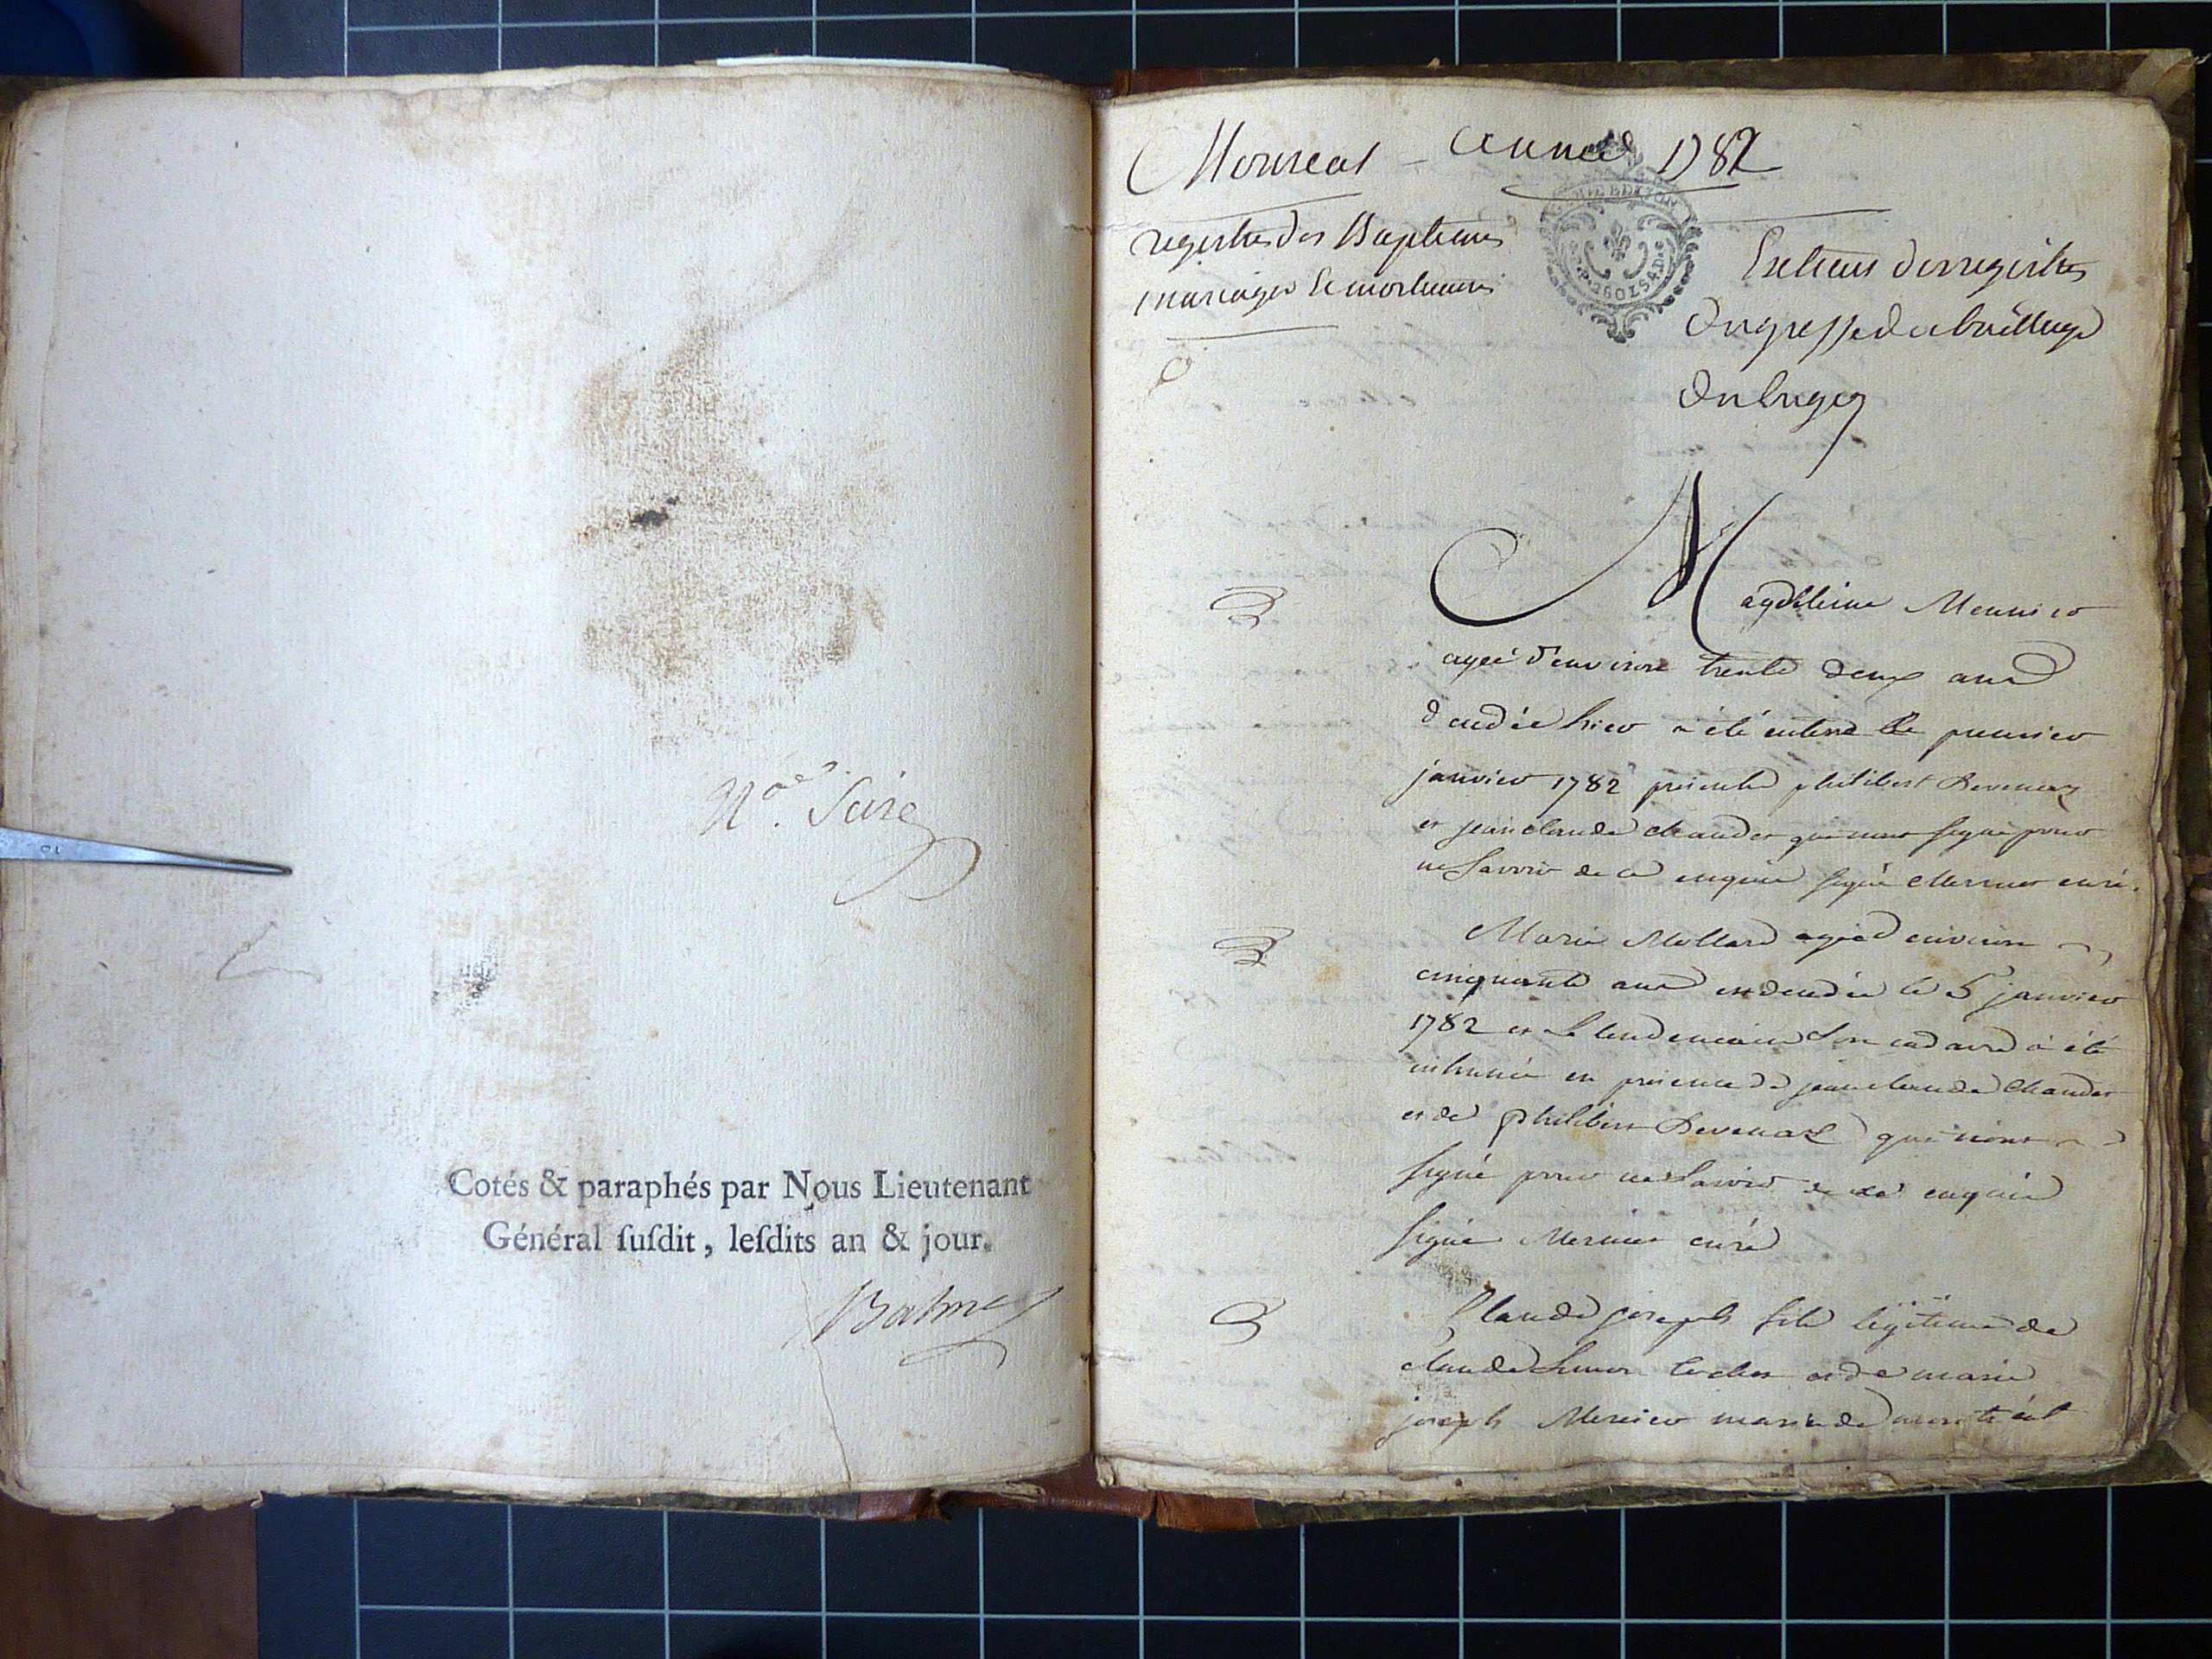 Cotés & paraphés par Nous Lieutenant
Général ſuſdit, leſdits an & jour.
Balme
Montreal - année 1782
registres des Baptemes
mariages & mortuaires
Extrait des registres
du greffe du bailliage
du bugey
Magdeleine Meunier
agée d'environ trente deux ans
decedée hier a été enterré le premier
janvier 1782 presents philibert Devenaz
et jean claude chaudet qui n'ont signé pour
ne savoir de ce enquis signé Mermet curé.
Marie Mollard agée d'environ
cinquante ans est decedée le 5 janvier
1782 et le lendemain son cadavre a été
inhumé en presence de jean claude Chaudet
et de philibert Devenaz qui n'ont
signé pour ne savoir de ce enquis
signé Mermet curé
Claude joseph fils légitime de
claude et de marie
joseph Mercier marié de